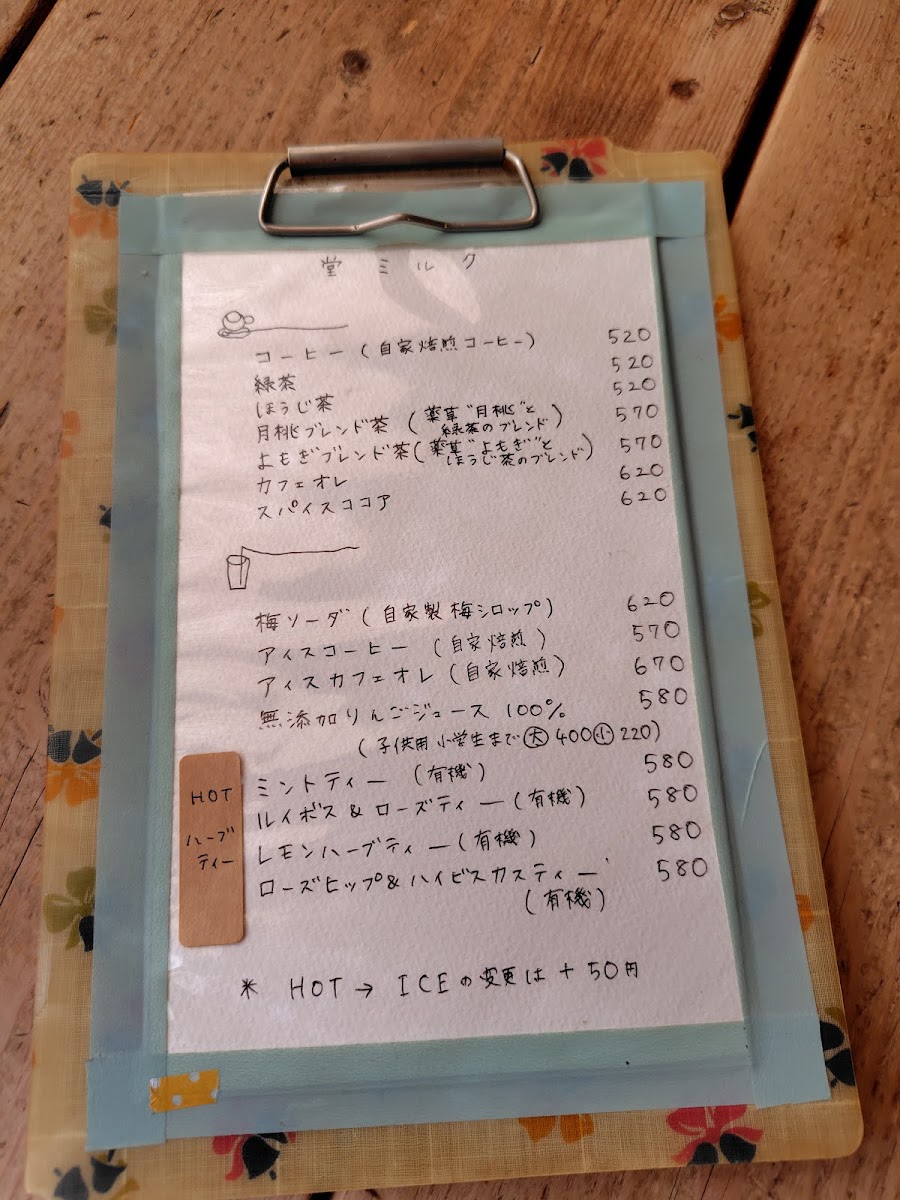 堂ミルク
コーヒー (自家焙煎コーヒー) 520
緑茶 520
ほうじ茶 520
月桃ブレンド茶 (薬草"月桃"と 570
緑茶のブレンド)
よもぎブレンド茶(薬草"よもぎ"と 570
ほうじ茶のブレンド)
カフェオレ 620
スパイスココア 620
梅ソーダ (自家製梅シロップ) 620
アイスコーヒー (自家焙煎) 570
アイスカフェオレ (自家焙煎) 670
無添加りんごジュース 100% 580
(子供用 小学生まで 大 400 小 220)
HOT
ハーブ
ティー
ミントティー (有機) 580
ルイボス&ローズティー (有機) 580
レモンハーブティー (有機) 580
ローズヒップ&ハイビスカスティー 580
(有機)
* HOT → ICEの変更は +50円